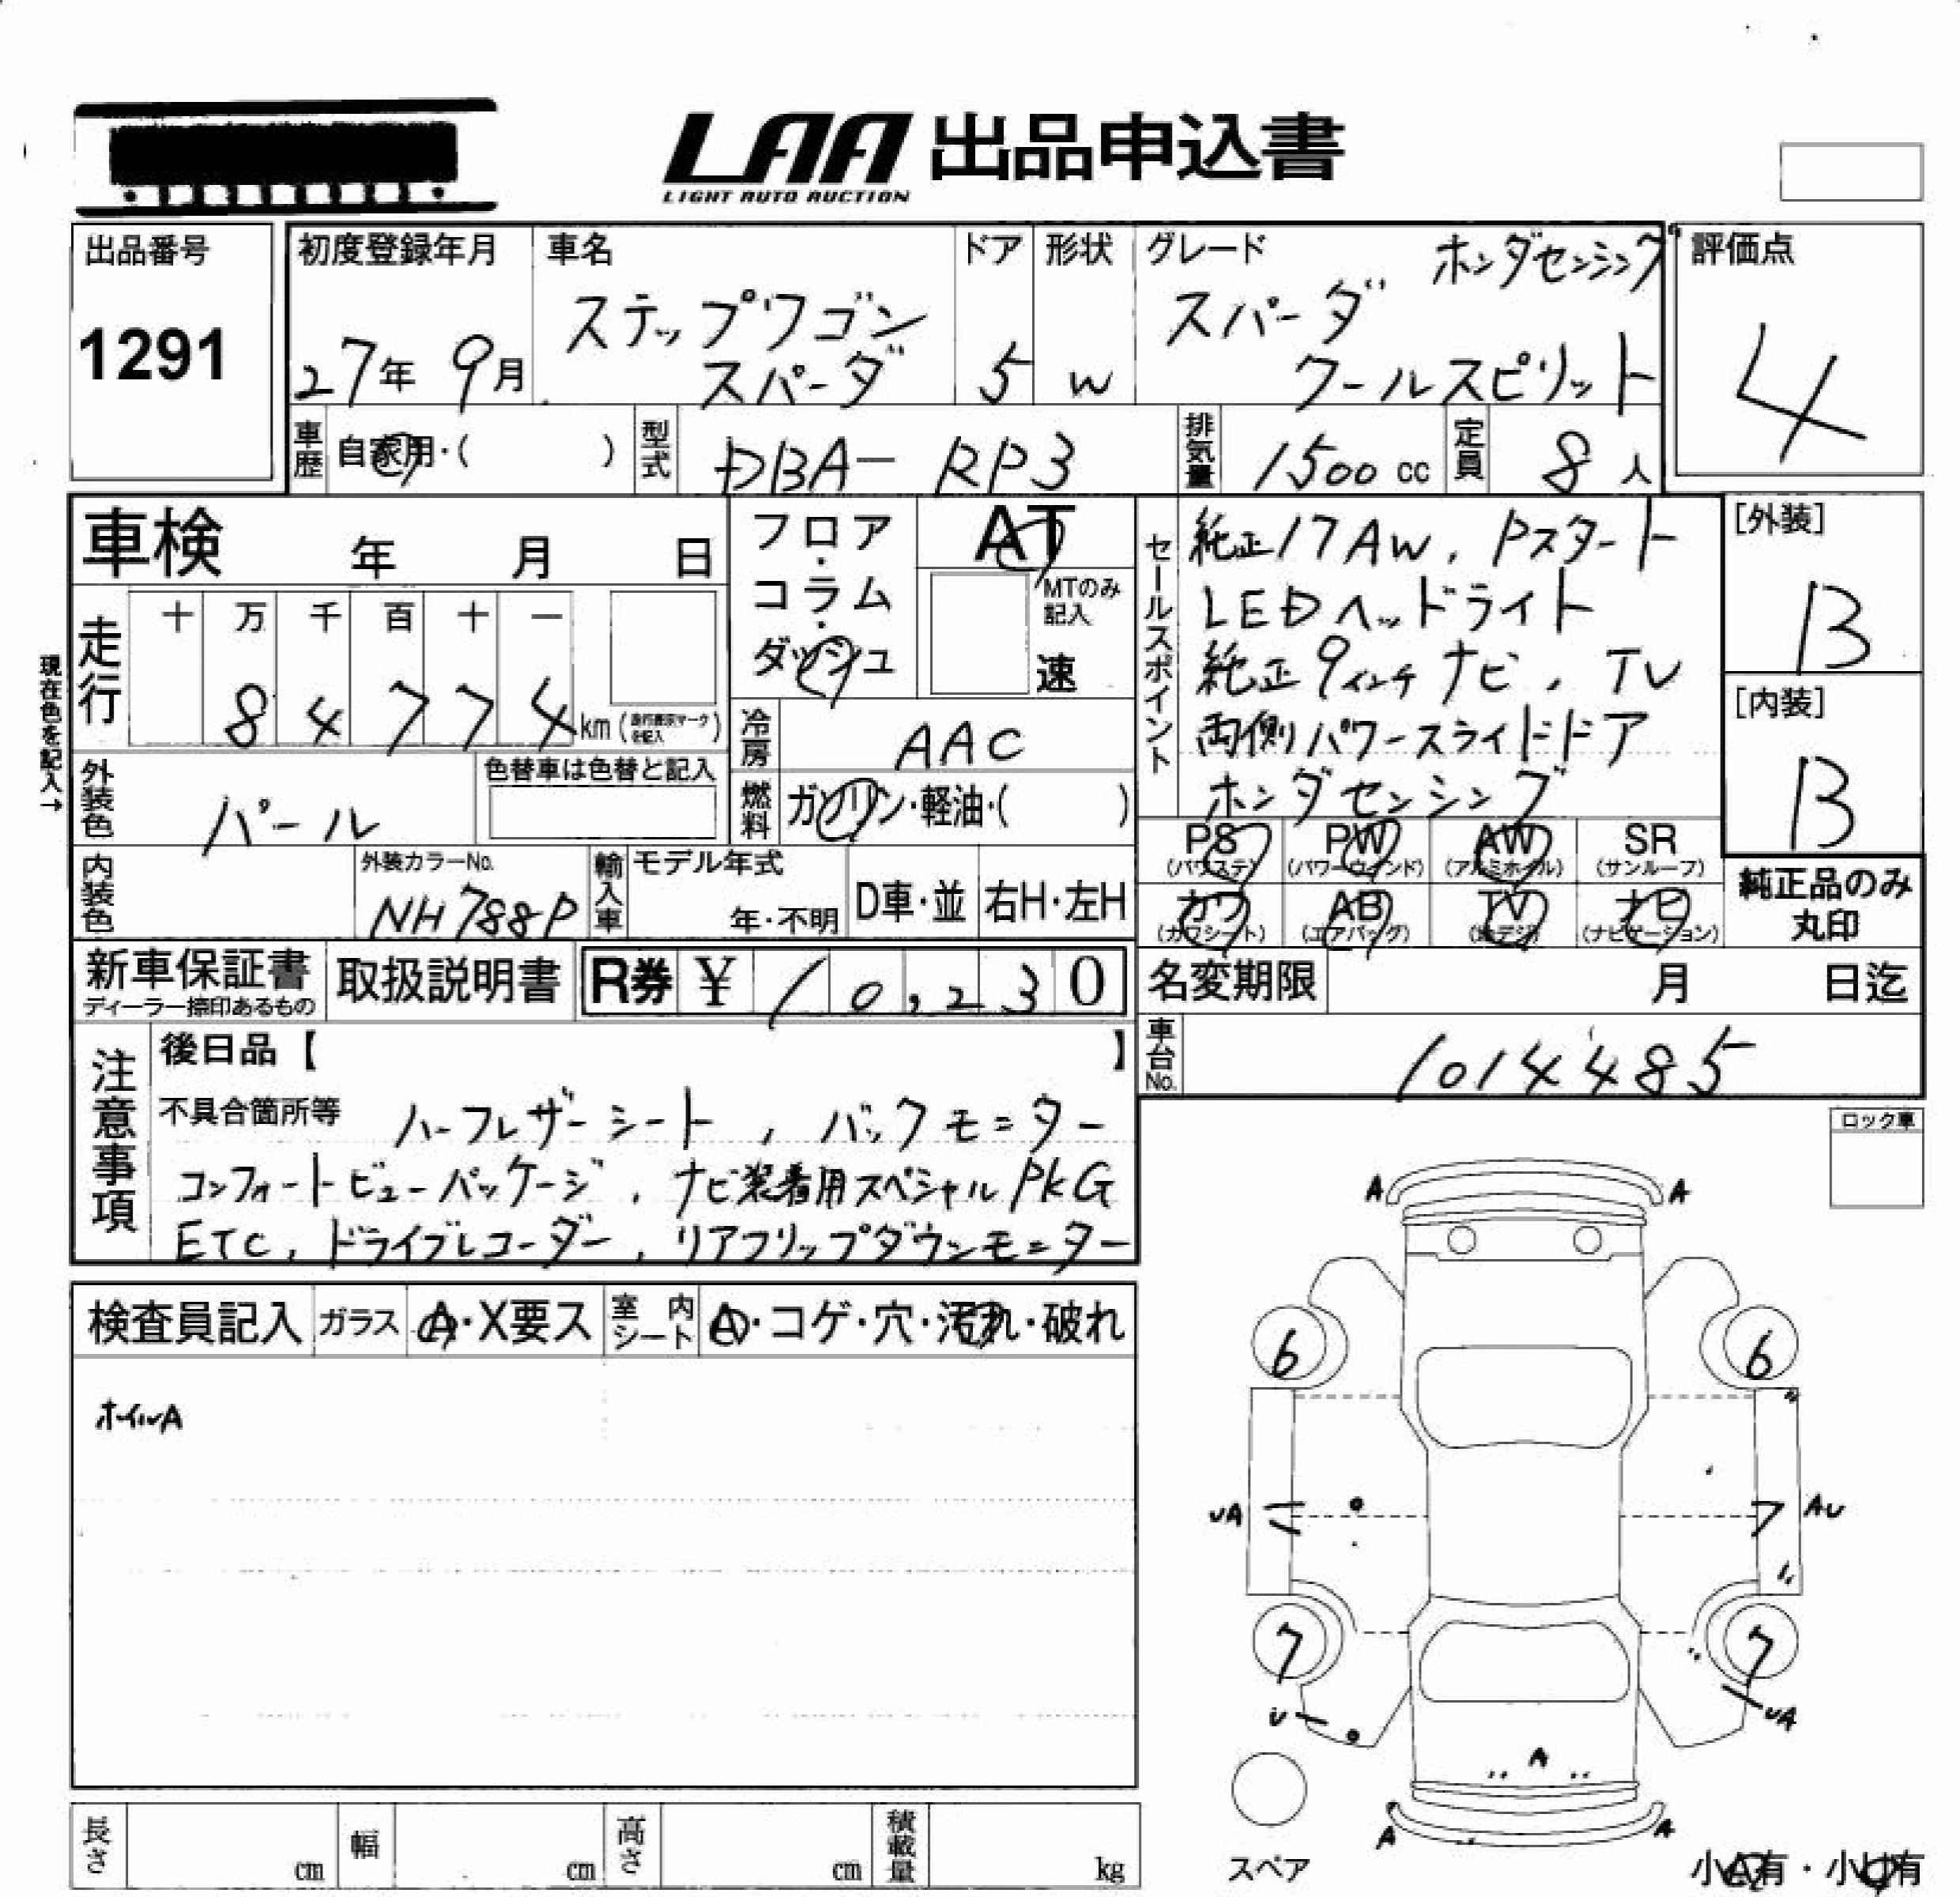 LAA 出品申込書
LIGHT AUTO AUCTION
出品番号
1291
初度登録年月
27年 9月
車名
ステップワゴン
スパーダ
ドア
5
形状
W
グレード
ホンダセンシング
スパーダ
クールスピリット
評価点
4
車歴
自家用・( )
型式
DBA- RP3
排気量
1500 cc
定員
8 人
車検 年 月 日
フロア・コラム・ダッシュ
AT
MTのみ記入
速
現在色を記入→
走行
十 万 千 百 十 一
8 4 7 7 4 km
冷房
AAC
外装色
パール
色替車は色替と記入
燃料
ガソリン・軽油・( )
内装色
外装カラーNo.
NH788P
輸入車
モデル年式
年・不明
D車・並
右H・左H
セールスポイント
純正17AW, Pスタート
LEDヘッドライト
純正9インチナビ, TV
両側パワースライドドア
ホンダセンシング
[外装]
B
[内装]
B
PS (パワステ)
PW (パワーウインド)
AW (アルミホイル)
SR (サンルーフ)
カワ (カワシート)
AB (エアバッグ)
TV (地デジ)
ナビ (ナビゲーション)
純正品のみ
丸印
新車保証書
ディーラー捺印あるもの
取扱説明書
R券 ¥ 10,230
名変期限 月 日迄
車台No.
1014485
注意事項
後日品【 】
不具合箇所等 ハーフレザーシート, バックモニター
コンフォートビューパッケージ, ナビ装着用スペシャルPKG
ETC, ドライブレコーダー, リアフリップダウンモニター
ロック車
検査員記入
ガラス
A・X要ス
室内シート
A・コゲ・穴・汚れ・破れ
ホイルA
A A
6 6
UA AU
7 7
U UA
A
A A
スペア
小A有・小U有
長さ cm
幅 cm
高さ cm
積載量 kg